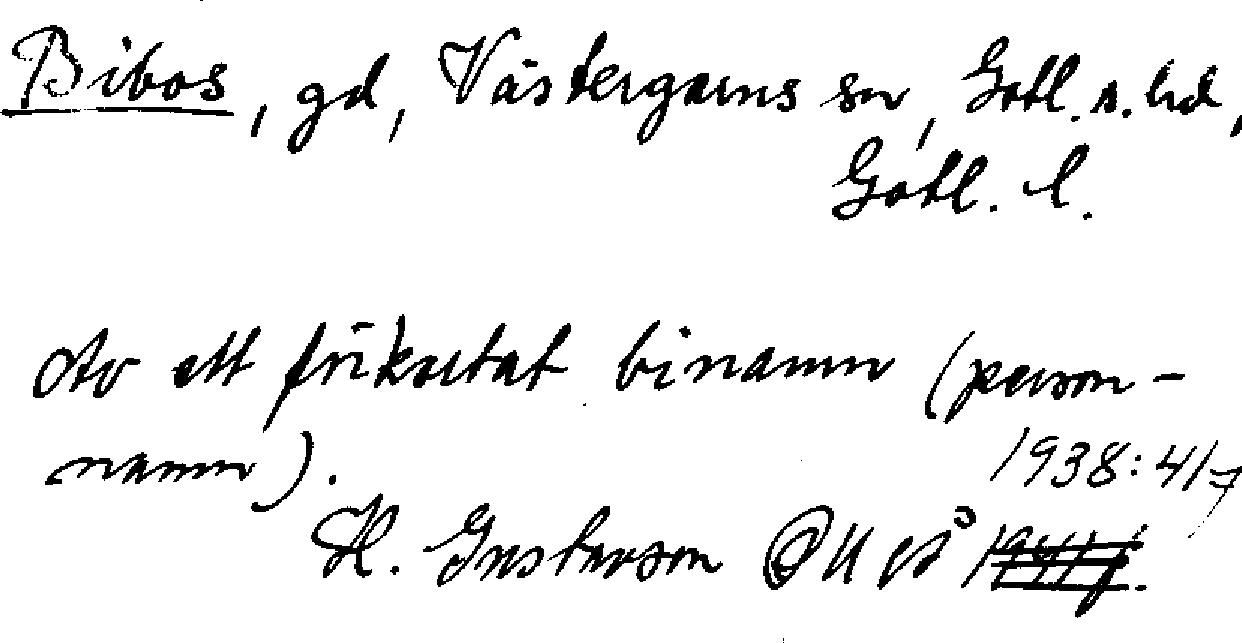 Bibos, gd, Västergarns sn, Gotl. n. hd,
Gotl. l.
Av ett förkortat binamn (person-
namn).
1938:41
H. Gustavson OUÅ